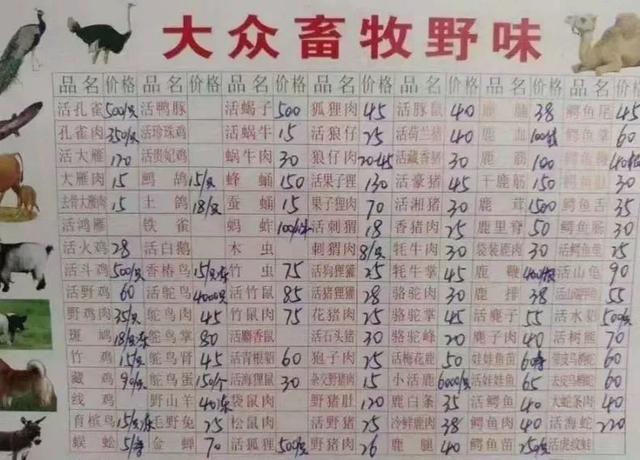 大众畜牧野味
品名 价格 品名 价格 品名 价格 品名 价格 品名 价格 品名 价格 品名 价格
活孔雀 500/只 活鸭豚 活蝎子 500 狐狸肉 45 活豚鼠 40 38 鳄鱼尾 45
孔雀肉 350/只 活珍珠鸡 活蜗牛 15 活狼仔 25 活荷兰猪 40 鹿血 鳄鱼掌 60
活大雁 120 活贵妃鸡 蜗牛肉 30 狼仔肉 活藏香猪 30 鹿筋 100
大雁肉 15 鹧鸪 15/只 蜂蛹 150 活果子狸 130 活豪猪 45 干鹿筋 150 30
去骨大雁肉 15 土鸽 18/只 蚕蛹 15 果子狸肉 70 活湘猪 30 鹿茸 1500 鳄鱼舌 35
活鸿雁 铁雀 蚂蚱 活刺猬 香猪肉 25 鹿里脊 50 鳄鱼肠 30
活火鸡 28 活白鹅 木虫 刺猬肉 8/只 牦牛肉 30 袋装鹿肉 30 活鳄鱼龟 25
活斗鸡 500/只 香椿鸟 竹虫 75 活狗狸獾 25 牦牛掌 45 鹿鞭 活山龟 90
活野鸡 60 活鸵鸟 4000 活竹鼠 85 活猪狸獾 28 骆驼肉 30 鹿排 38 55
野鸡肉 35/只 鸵鸟肉 45 竹鼠肉 75 花猪肉 25 骆驼掌 45 活麂子 55 活水貂
斑鸠 鸵鸟掌 80 活麝香鼠 活石头猪 30 骆驼峰 20 麂子肉 40 活树熊 70
竹鸡 鸵鸟肾 45 活青根貂 60 狍子肉 25 活梅花鹿 50 娃娃鱼苗 60
藏鸡 90/只 鸵鸟蛋 150/个 活海狸鼠 30 杂交野猪肉 15 小活鹿 6000/只 活娃娃鱼 65 60
线鸡 野山羊 袋鼠肉 野猪肚 120 鹿白条 35 活鳄鱼 40 大蛇条肉 40
育槟鸟 15/只 毛野兔 25 松鼠肉 活野猪 25 冷鲜鹿肉 38 鳄鱼肉 40 活海蛇 220
蜈蚣 金蝉 70 活狐狸 500/只 野猪肉 26 鹿腿 40 鳄鱼苗 250 活虎纹蛙